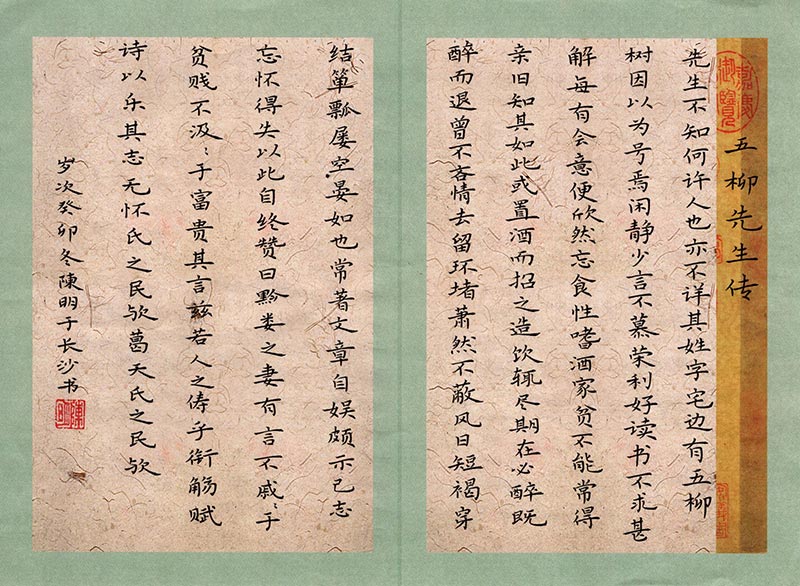 五柳先生传
先生不知何许人也亦不详其姓字宅边有五柳
树因以为号焉闲静少言不慕荣利好读书不求甚
解每有会意便欣然忘食性嗜酒家贫不能常得
亲旧知其如此或置酒而招之造饮辄尽期在必醉既
醉而退曾不吝情去留环堵萧然不蔽风日短褐穿
结箪瓢屡空晏如也常著文章自娱颇示己志
忘怀得失以此自终赞曰黔娄之妻有言不戚〻于
贫贱不汲〻于富贵其言兹若人之俦乎衔觞赋
诗以乐其志无怀氏之民欤葛天氏之民欤
岁次癸卯冬陳明于长沙书